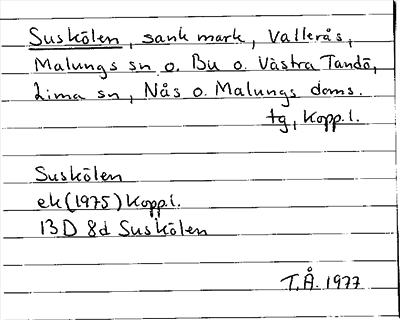 Suskölen, sank mark, Vallerås,
Malungs sn o. Bu o. Västra Tandö,
Lima sn, Nås o. Malungs doms.
tg, Kopp. l.
Suskölen
ek (1975) Kopp. l.
13 D 8d Suskölen
T.Å. 1977